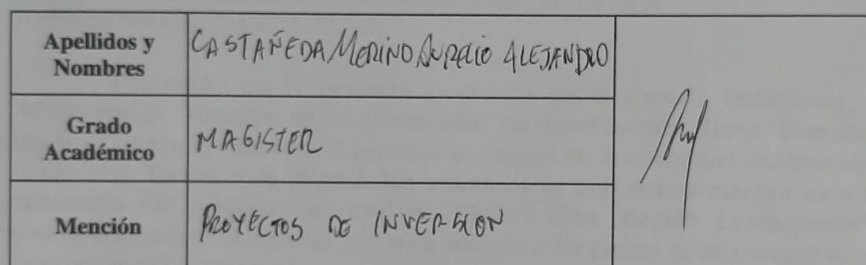 Apellidos y
Nombres
CASTAÑEDA MERINO AURELIO ALEJANDRO
Grado
Académico
MAGISTER
Mención
PROYECTOS DE INVERSION